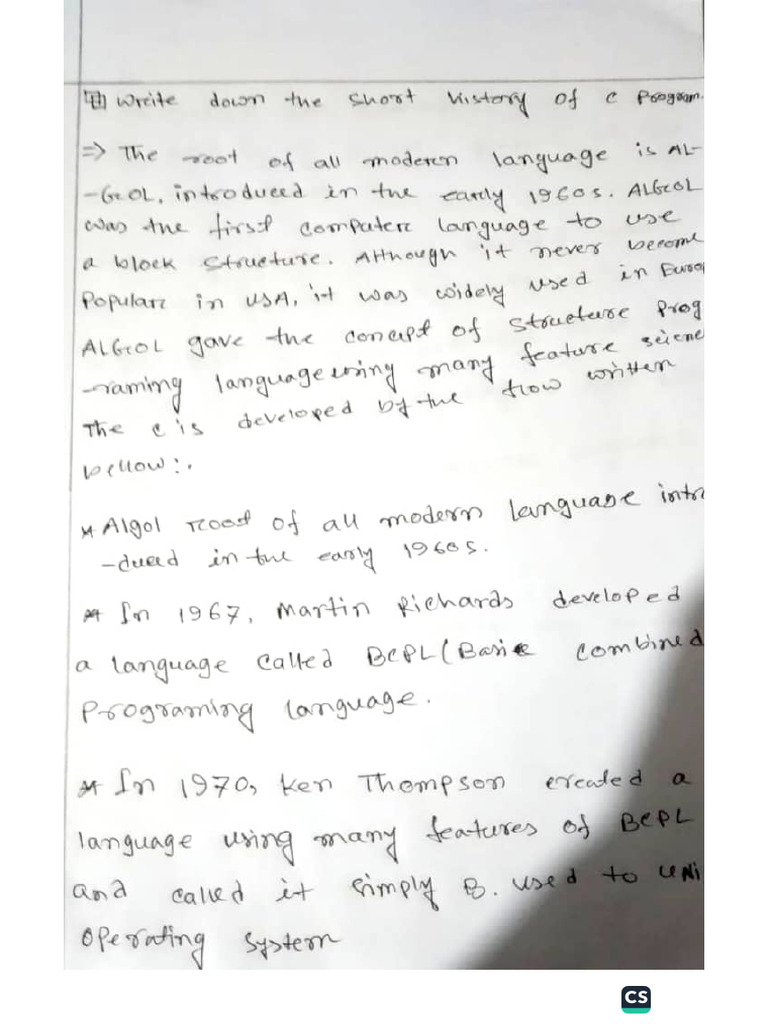 Write down the short history of c program.
⇒ The root of all modern language is AL-
-GOL, introdueed in the early 1960s. ALGOL
was the first computer language to use
a block structure. Although it never become
popular in USA, it was widely used in Europ
ALGOL gave the concept of structure prog
-raming language using many feature scienc
The c is developed by the flow written
bellow:.
* Algol root of all modern language intro
-dueed in the early 1960s.
* In 1967, Martin Richards developed
a language called BCPL (Basic combined
programing language.
* In 1970, Ken Thompson created a
language using many features of BCPL
and called it simply B. used to UNI
operating system
CS